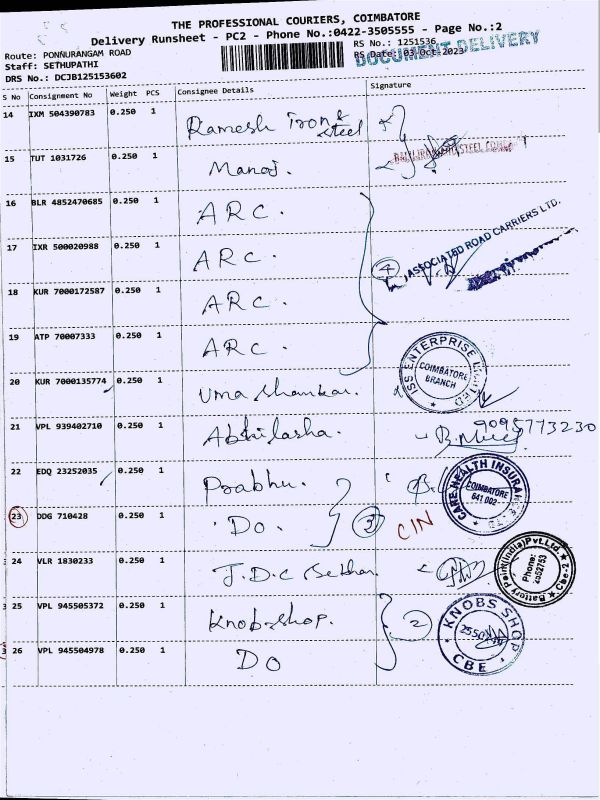 THE PROFESSIONAL COURIERS, COIMBATORE
Delivery Runsheet - PC2 - Phone No.:0422-3505555 - Page No.:2
Route: PONNURANGAM ROAD
RS No.: 1251536
Staff: SETHUPATHI
RS Date: 03-Oct-2023
DOCUMENT DELIVERY
DRS No.: DCJB125153602
S No Consignment No Weight PCS Consignee Details Signature
14 IXM 504390783 0.250 1 Ramesh Iron & Steel
15 TUT 1031726 0.250 1 Manoj.
16 BLR 4852470685 0.250 1 ARC.
17 IXR 500020988 0.250 1 ARC.
4 ASSOCIATED ROAD CARRIERS LTD.
18 KUR 7000172587 0.250 1 ARC.
19 ATP 70007333 0.250 1 ARC.
20 KUR 7000135774 0.250 1 Uma Shankar.
ISS ENTERPRISE LIMITED
COIMBATORE
BRANCH
21 VPL 939402710 0.250 1 Abhilasha. 9095773230
22 EDQ 23252035 0.250 1 Prabhu.
CARE HEALTH INSURANCE
COIMBATORE
641 002
23 DDG 710428 0.250 1 Do. CIN
24 VLR 1830233 0.250 1 J.D.C
Battery Point(India)Pvt.Ltd.
Phone:
2552753
Cbe-2
25 VPL 945505372 0.250 1 Knobs shop. 2
KNOBS SHOP
CBE
26 VPL 945504978 0.250 1 DO